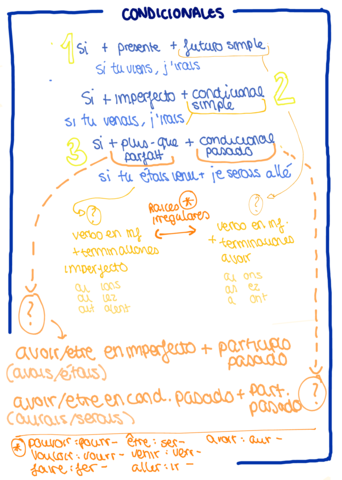 CONDICIONALES
1 si + presente + futuro simple
si tu viens, j'irais
Si + imperfecto + condicional simple 2
si tu venais, j'irais
3 si + plus-que parfait + condicional pasado
si tu étais venu + je serais allé
? Raíces * irregulares ?
verbo en inf. verbo en inf.
+ terminaciones + terminaciones
imperfecto avoir
ai ions ai ons
ai iez as ez
ait aient a ont
?
avoir/etre en imperfecto + participio pasado
(avais/étais)
avoir/etre en cond. pasado + part. pasado ?
(aurais/serais)
* pouvoir: pourr- être: ser- avoir: aur-
vouloir: vourr- venir: verr-
faire: fer- aller: ir-